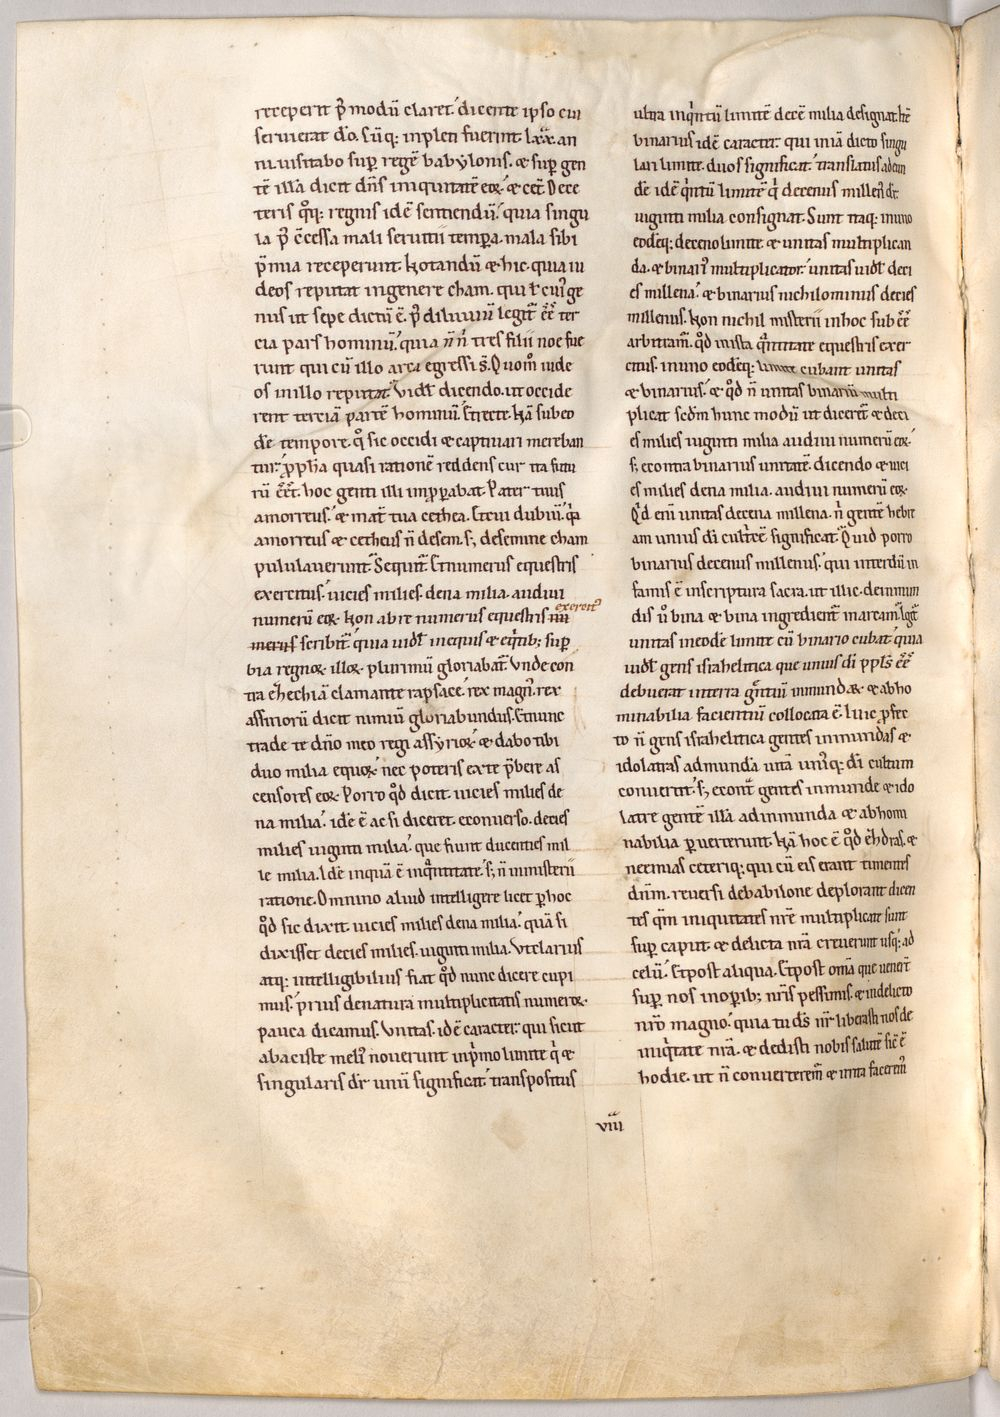 receperit p̄ modū claret. dicente ipso cui
seruierat dō. Cūq; inpleti fuerint lxx. an
ni. uisitabo sup regē babylonis. & sup gen
tē illā dicit dn̄s iniquitatē eoꝝ. & cet̄. De ce
teris q̊q; regnis idē sentiendū. quia singu
la p̄ excessa mali seruitii tempora. mala sibi
p̄mia receperunt. Notandū & hic. quia iu
deos reputat in genere cham. qui ł cui' ge
nus ut sepe dictū ē. p̄ diluuiū legit̄ ēē ter
cia pars hominū. quia n̄ n̄ tres filii noe fue
runt qui cū illo arca egressi s̄. Quom̊ iude
os in illo reputat. Videlicet dicendo. ut occide
rent terciā partē hominū. Et recte. Nā sub eo
dē tempore. q̊ sic occidi & captiuari mereban
tur. ꝓpha quasi rationē reddens cur ita futu
rū ēēt. hoc genti illi inꝓperabat. Pater tuus
amorreus. & mat̄ tua cethea. Et cui dubiū. q̄
amorreus & cetheus n̄ de sem. s; de semine cham
pululauerunt. Sequit̄. Et numerus equestris
exercitus. uicies milies. dena milia. audiui
numerū eoꝝ. Non ab re numerus equestris nu
exercit'
merus scribit̄. quia uidel̄ in equis & eqtib; sup
bia regnoꝝ illoꝝ plurimū gloriabat̄. Vnde con
tra ezechiā clamante rapsace. rex magn' rex
assirioꝝ dicit nimiū gloriabundus. Et nunc
trade te dn̄o meo regi assyrioꝝ. & dabo tibi
duo milia equoꝝ. nec poteris ex te p̄bere as
censores eoꝝ. Porro q̊d dicit. uicies milies de
na milia. idē ē ac si diceret. e conuerso. decies
milies uiginti milia. que fiunt ducenties mil
le milia. Idē inquā ē in q̄ntitate. s; n̄ in misterii
ratione. Omnino aliud intelligere licet p hoc
q̊d sic dixit uicies milies dena milia. quā si
dixisset decies milies. uiginti milia. Vt clarius
atq; intelligibilius fiat q̊d nunc dicere cupi
mus. prius de natura multiplicitatis numeroꝝ.
pauca dicamus. Vnitas. idē caracter. qui sicut
abaciste meli' nouerunt in p̄mo limite q̇ &
singularis dr̄ unū significat. transpositus
ultra in q̇ntū limitē decē milia designat. Itē
binarius idē caracter. qui in iā dicto singu
lari limite. duos significat. translatus ad eun
dē idē q̇ntū limitē q̇ decenus millen' dr̄.
uiginti milia consignat. Sunt itaq; in uno
eodēq; deceno limite & unitas multiplican
da. & binari' multiplicator. unitas uidel̄ deci
es millena. & binarius nichilominus decies
millenus. Non nichil misterii in hoc sub ēē
arbitramur. q̊d in ista q̄ntitate equestris exer
citus. in uno eodēq; limite cubant unitas
& binarius. & q̊d n̄ unitas binariū multi
plicat scd̄m hunc modū ut diceret & deci
es milies uiginti milia audiui numerū eoꝝ.
s; econtra binarius unitatē. dicendo & uici
es milies dena milia. audiui numerū eoꝝ.
Q̊d enī unitas decena millena. n̄ gentē hebre
am unius di cultricē significat. Quid porro
binarius decenus millenus. qui interdū in
famis ē in scriptura sacra. ut illic. de inmun
dis ů bina & bina ingredient̄ in arcam.
unitas in eodē limite cū binario cubat. quia
uidel̄ gens israhelitica que unius di pp̄ls ēē
debuerat in terra gentiū inmundaꝝ. & abho
minabilia facientiū collocata ē. Huic ꝓfec
to n̄ gens israhelitica gentes inmundas &
idolatras ad munda uitā uniq; di cultum
conuertit. s; econt̄ gentes inmunde & ido
latre gentē illā ad inmunda & abhomi
nabilia puerterunt. Nā hoc ē q̊d ehdras. &
neemias ceteriq; qui cū eis erant timentes
dn̄m. reuersi de babilone deplorant dicen
tes qm̄ iniquitates nrē multiplicate sunt
sup caput. & delicta nrā creuerunt usq; ad
celū. Et post aliqua. Et post om̄a que uenert̄
sup nos in opib; nr̄is pessimis. & in delicto
nrō magno. quia tu ds̄ nr̄ liberasti nos de
iniq̇tate nrā. & dedisti nobis salutē sic ē
hodie. ut n̄ conuerterem̄ & irrita facerem'
viii